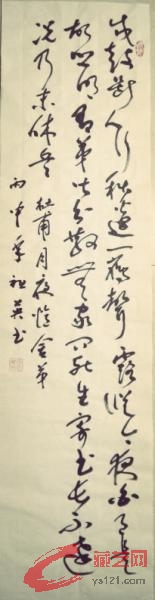 戍鼓断人行秋边一雁声露从今夜白月是
故乡明有弟皆分散无家问死生寄书长不达
况乃未休兵 杜甫月夜忆舍弟
丙申年祖英书
藏艺网
ys121.com